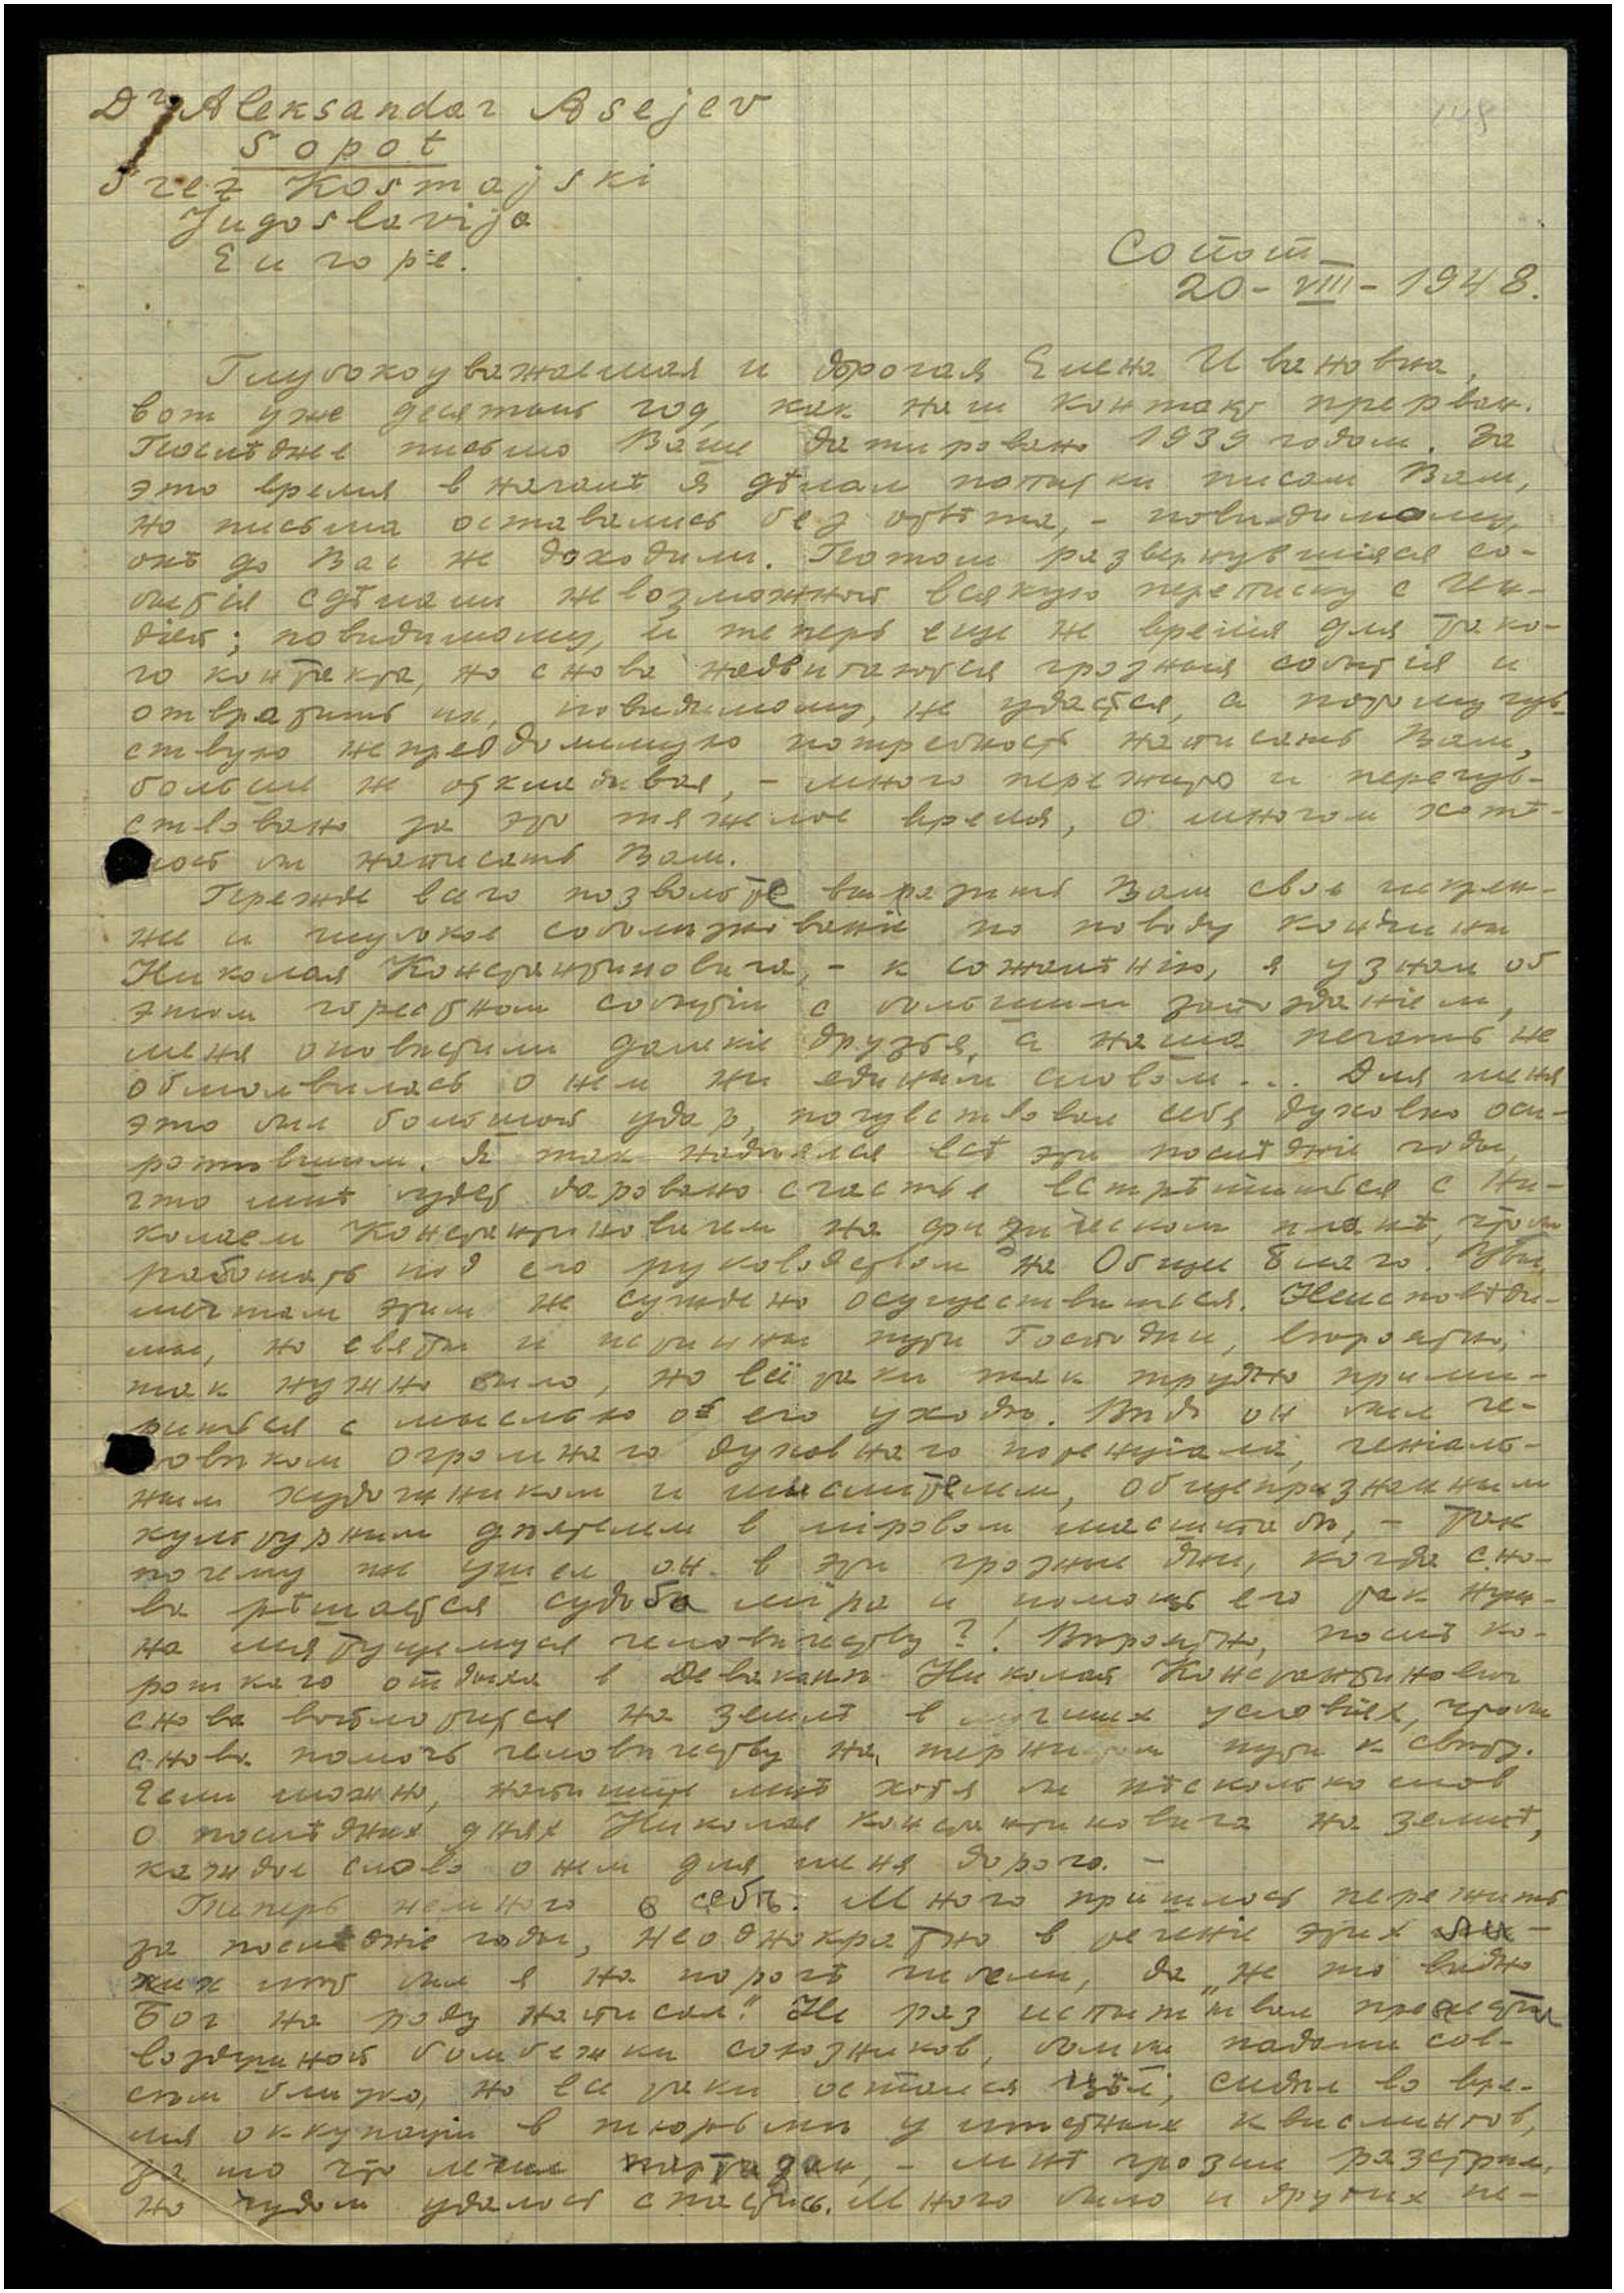 Dr Aleksandar Asejev
Sopot
Srez Kosmajski
Jugoslavija
Europe.
Сопот
20-VIII-1948.
Глубокоуважаемая и дорогая Елена Ивановна,
вот уже десятый год, как наш контакт прерван.
Послѣднее письмо Ваше датировано 1939 годом. За
это время в началѣ я дѣлал попытки писать Вам,
но письма оставались без отвѣта, - повидимому,
онѣ до Вас не доходили. Потом развернувшіяся со-
бытія сдѣлали невозможной всякую переписку с Ин-
діей; повидимому, и теперь еще не время для тако-
го контакта, но снова надвигаются грозныя событія и
отвратить их, повидимому, не удастся, а потому чув-
ствую непреодолимую потребность написать Вам,
больше не откладывая, - много пережито и перечув-
ствовано за это тяжелое время, о многом хотѣ-
лось бы написать Вам.
Прежде всего позвольте выразить Вам свое искрен-
нее и глубокое соболѣзнованіе по поводу кончины
Николая Константиновича, - к сожалѣнію, я узнал об
этом горестном событіи с большим запозданіем,
меня оповѣстили далекіе друзья, а наша печать не
обмолвилась о нем ни единым словом... Для меня
это был большой удар, почувствовал себя духовно оси-
ротѣвшим. Я так надѣялся всѣ эти послѣдніе годы,
что мнѣ будет даровано счастье встрѣтиться с Ни-
колаем Константиновичем на физическом планѣ, чтобы
работать под его руководством на Общее Благо. Увы,
мечтам этим не суждено осуществиться. Неисповѣди-
мы, но святы и истинны пути Господни, вѣроятно,
так нужно было, но всё таки так трудно прими-
риться с мыслью об его уходѣ. Вѣдь он был че-
ловѣком огромнаго духовнаго потенціала, геніаль-
ным художником и мыслителем, общепризнанным
культурным дѣятелем в міровом масштабѣ, - так
почему же ушел он в эти грозные дни, когда сно-
ва рѣшается судьба міра и помощь его так нуж-
на мятущемуся человѣчеству?! Вѣроятно, послѣ ко-
роткаго отдыха в Деваканѣ Николай Константинович
снова воплотится на землѣ в лучших условіях, чтобы
снова помочь человѣчеству на тернистом пути к свѣту.
Если можно, напишите мнѣ хотя бы нѣсколько слов
о послѣдних днях Николая Константиновича на землѣ,
каждое слово о нем для меня дорого. -
Теперь немного о себѣ. Много пришлось пережить
за послѣдніе годы, неоднократно в теченіе этих
лѣт был я на порогѣ гибели, да "не то видно
Бог на роду написал". Не раз испытывал прелести
воздушной бомбежки союзников, бомбы падали сов-
сѣм близко, но все таки остался цѣл, сидѣл во вре-
мя оккупаціи в тюрьмѣ у мѣстных квислингов,
за то что лечил партизан, - мнѣ грозил разстрѣл,
но чудом удалось спастись. Много было и других не-